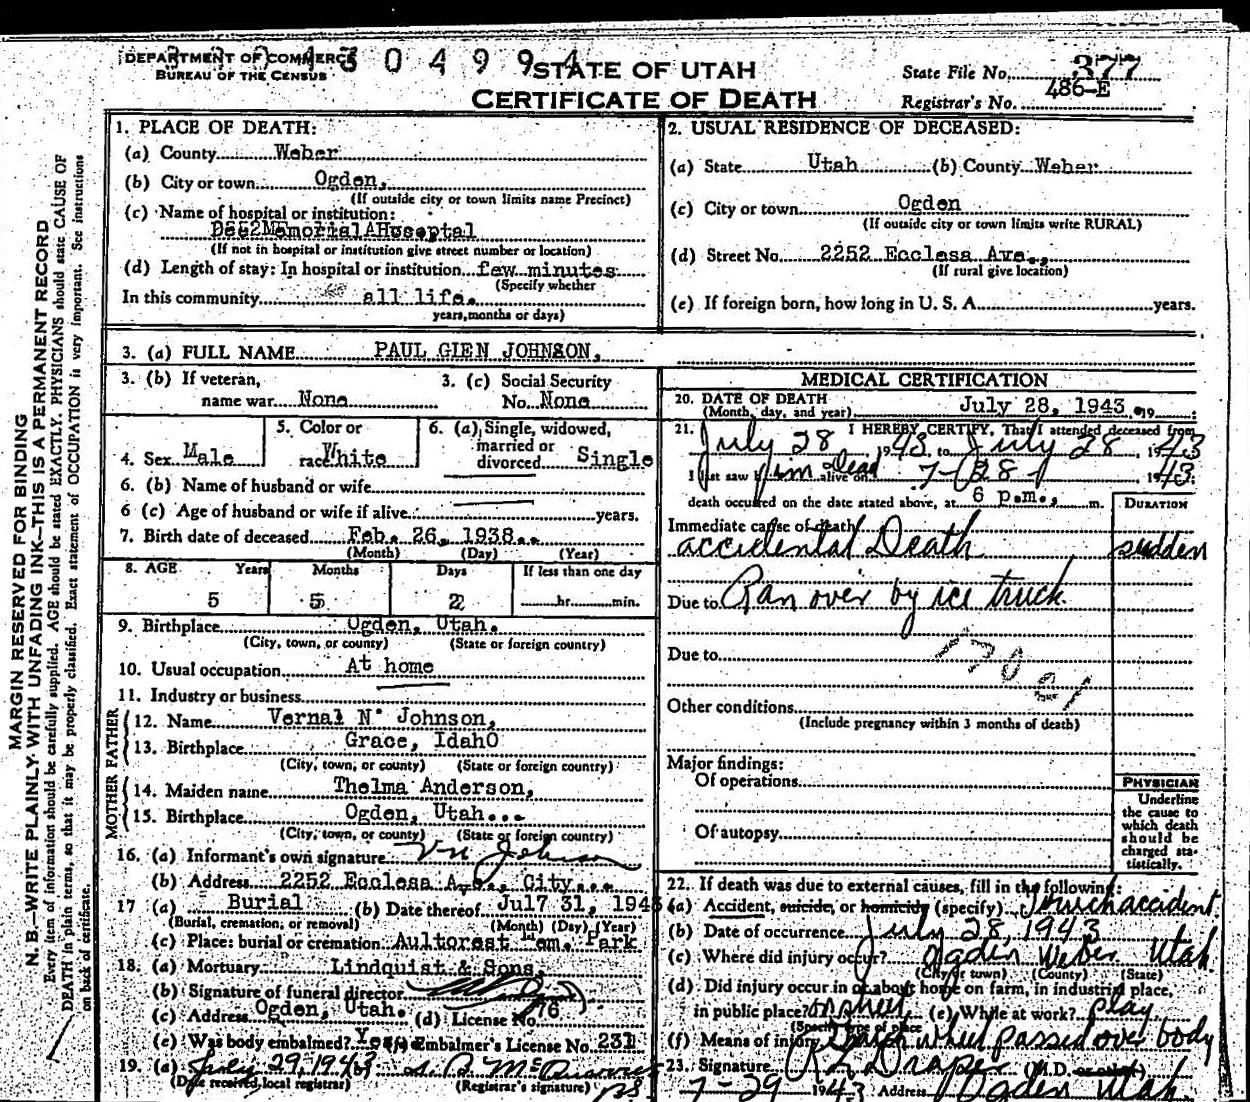 DEPARTMENT OF COMMERCE
BUREAU OF THE CENSUS
304994
STATE OF UTAH
CERTIFICATE OF DEATH
State File No. 377
486-E
Registrar's No.
MARGIN RESERVED FOR BINDING
N. B.—WRITE PLAINLY, WITH UNFADING INK—THIS IS A PERMANENT RECORD
Every item of information should be carefully supplied. AGE should be stated EXACTLY. PHYSICIANS should state CAUSE OF
DEATH in plain terms, so that it may be properly classified. Exact statement of OCCUPATION is very important. See instructions
on back of certificate.
1. PLACE OF DEATH:
(a) County Weber
(b) City or town Ogden,
(If outside city or town limits name Precinct)
(c) Name of hospital or institution:
Memorial
(If not in hospital or institution give street number or location)
(d) Length of stay: In hospital or institution few minutes
(Specify whether
In this community all life.
years, months or days)
2. USUAL RESIDENCE OF DECEASED:
(a) State Utah (b) County Weber
(c) City or town Ogden
(If outside city or town limits write RURAL)
(d) Street No. 2252 Ecclesa Ave.,
(If rural give location)
(e) If foreign born, how long in U. S. A. years.
3. (a) FULL NAME PAUL GIEN JOHNSON,
3. (b) If veteran,
name war None
3. (c) Social Security
No. None
4. Sex Male
5. Color or
race White
6. (a) Single, widowed,
married or
divorced Single
6. (b) Name of husband or wife
6 (c) Age of husband or wife if alive years.
7. Birth date of deceased Feb. 26, 1938..
(Month) (Day) (Year)
8. AGE Years Months Days If less than one day
5 5 2 hr. min.
9. Birthplace Ogden, Utah.
(City, town, or county) (State or foreign country)
10. Usual occupation At home
11. Industry or business
FATHER
12. Name Vernal N. Johnson,
13. Birthplace Grace, IdahO
(City, town, or county) (State or foreign country)
MOTHER
14. Maiden name Thelma Anderson,
15. Birthplace Ogden, Utah...
(City, town, or county) (State or foreign country)
16. (a) Informant's own signature V N Johnson
(b) Address 2252 Ecclesa Ave., City...
17 (a) Burial (b) Date thereof Jul7 31, 1943
(Burial, cremation, or removal) (Month) (Day) (Year)
(c) Place: burial or cremation Aultorest Mem. Park
18. (a) Mortuary Lindquist & Sons,
(b) Signature of funeral director
(c) Address Ogden, Utah. (d) License No. 76
(e) Was body embalmed? Yes (f) Embalmer's License No. 231
19. (a) July 29, 1943 (b)
(Date received local registrar) (Registrar's signature)
MEDICAL CERTIFICATION
20. DATE OF DEATH
(Month, day, and year) July 28, 1943. 19
21. I HEREBY CERTIFY, That I attended deceased from
July 28, 1943, to July 28, 1943
I last saw him Dead alive on 7-28 1943.
death occurred on the date stated above, at 6 p.m., m.
DURATION
Immediate cause of death
accidental Death sudden
Due to Ran over by ice truck.
Due to
17021
Other conditions
(Include pregnancy within 3 months of death)
Major findings:
Of operations
Of autopsy
PHYSICIAN
Underline
the cause to
which death
should be
charged sta-
tistically.
22. If death was due to external causes, fill in the following:
(a) Accident, suicide, or homicide (specify) Truck accident
(b) Date of occurrence July 28, 1943
(c) Where did injury occur? Ogden Weber Utah.
(City or town) (County) (State)
(d) Did injury occur in or about home on farm, in industrial place,
in public place? on street (e) While at work? play
(Specify type of place)
(f) Means of injury wheel passed over body
23. Signature R L Draper (M.D. or other)
7-29 1943 Address Ogden Utah.